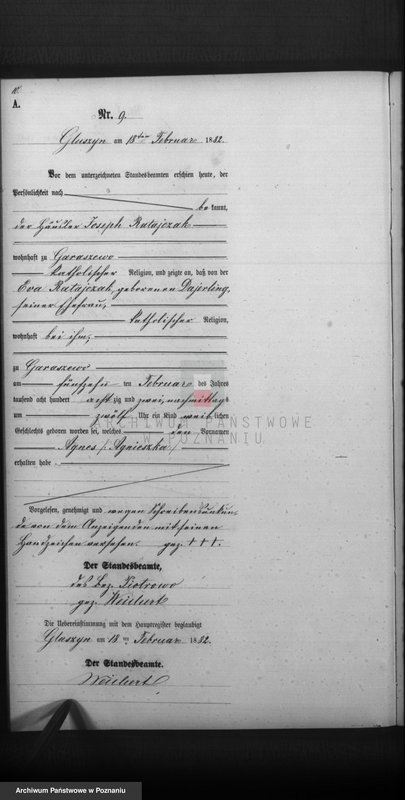 10.
A.
Nr. 9.
Gluszyn am 18ten Februar 1882.
Vor dem unterzeichneten Standesbeamten erschien heute, der
Persönlichkeit nach
bekannt,
der Häusler Joseph Ratajczak
wohnhaft zu Garaszewo
katholischer Religion, und zeigte an, daß von der
Eva Ratajczak, geborenen Dajerling,
seiner Ehefrau,
katholischer Religion,
wohnhaft bei ihm,
zu Garaszewo
am fünfzehn ten Februar des Jahres
tausend acht hundert acht zig und zwei, nachmittags
um zwölf Uhr ein Kind weiblichen
Geschlechts geboren worden sei, welches den Vornamen
Agnes /Agnieszka/
erhalten habe.
Vorgelesen, genehmigt und wegen Schreibensunkun-
de von dem Anzeigenden mit seinen
Handzeichen versehen. gez. +++.
Der Standesbeamte,
des Bez. Piotrowo
gez. Weichert
Die Uebereinstimmung mit dem Hauptregister beglaubigt
Gluszyn am 18ten Februar 1882.
Der Standesbeamte.
Weichert
ARCHIWUM PAŃSTWOWE
W POZNANIU
Archiwum Państwowe w Poznaniu